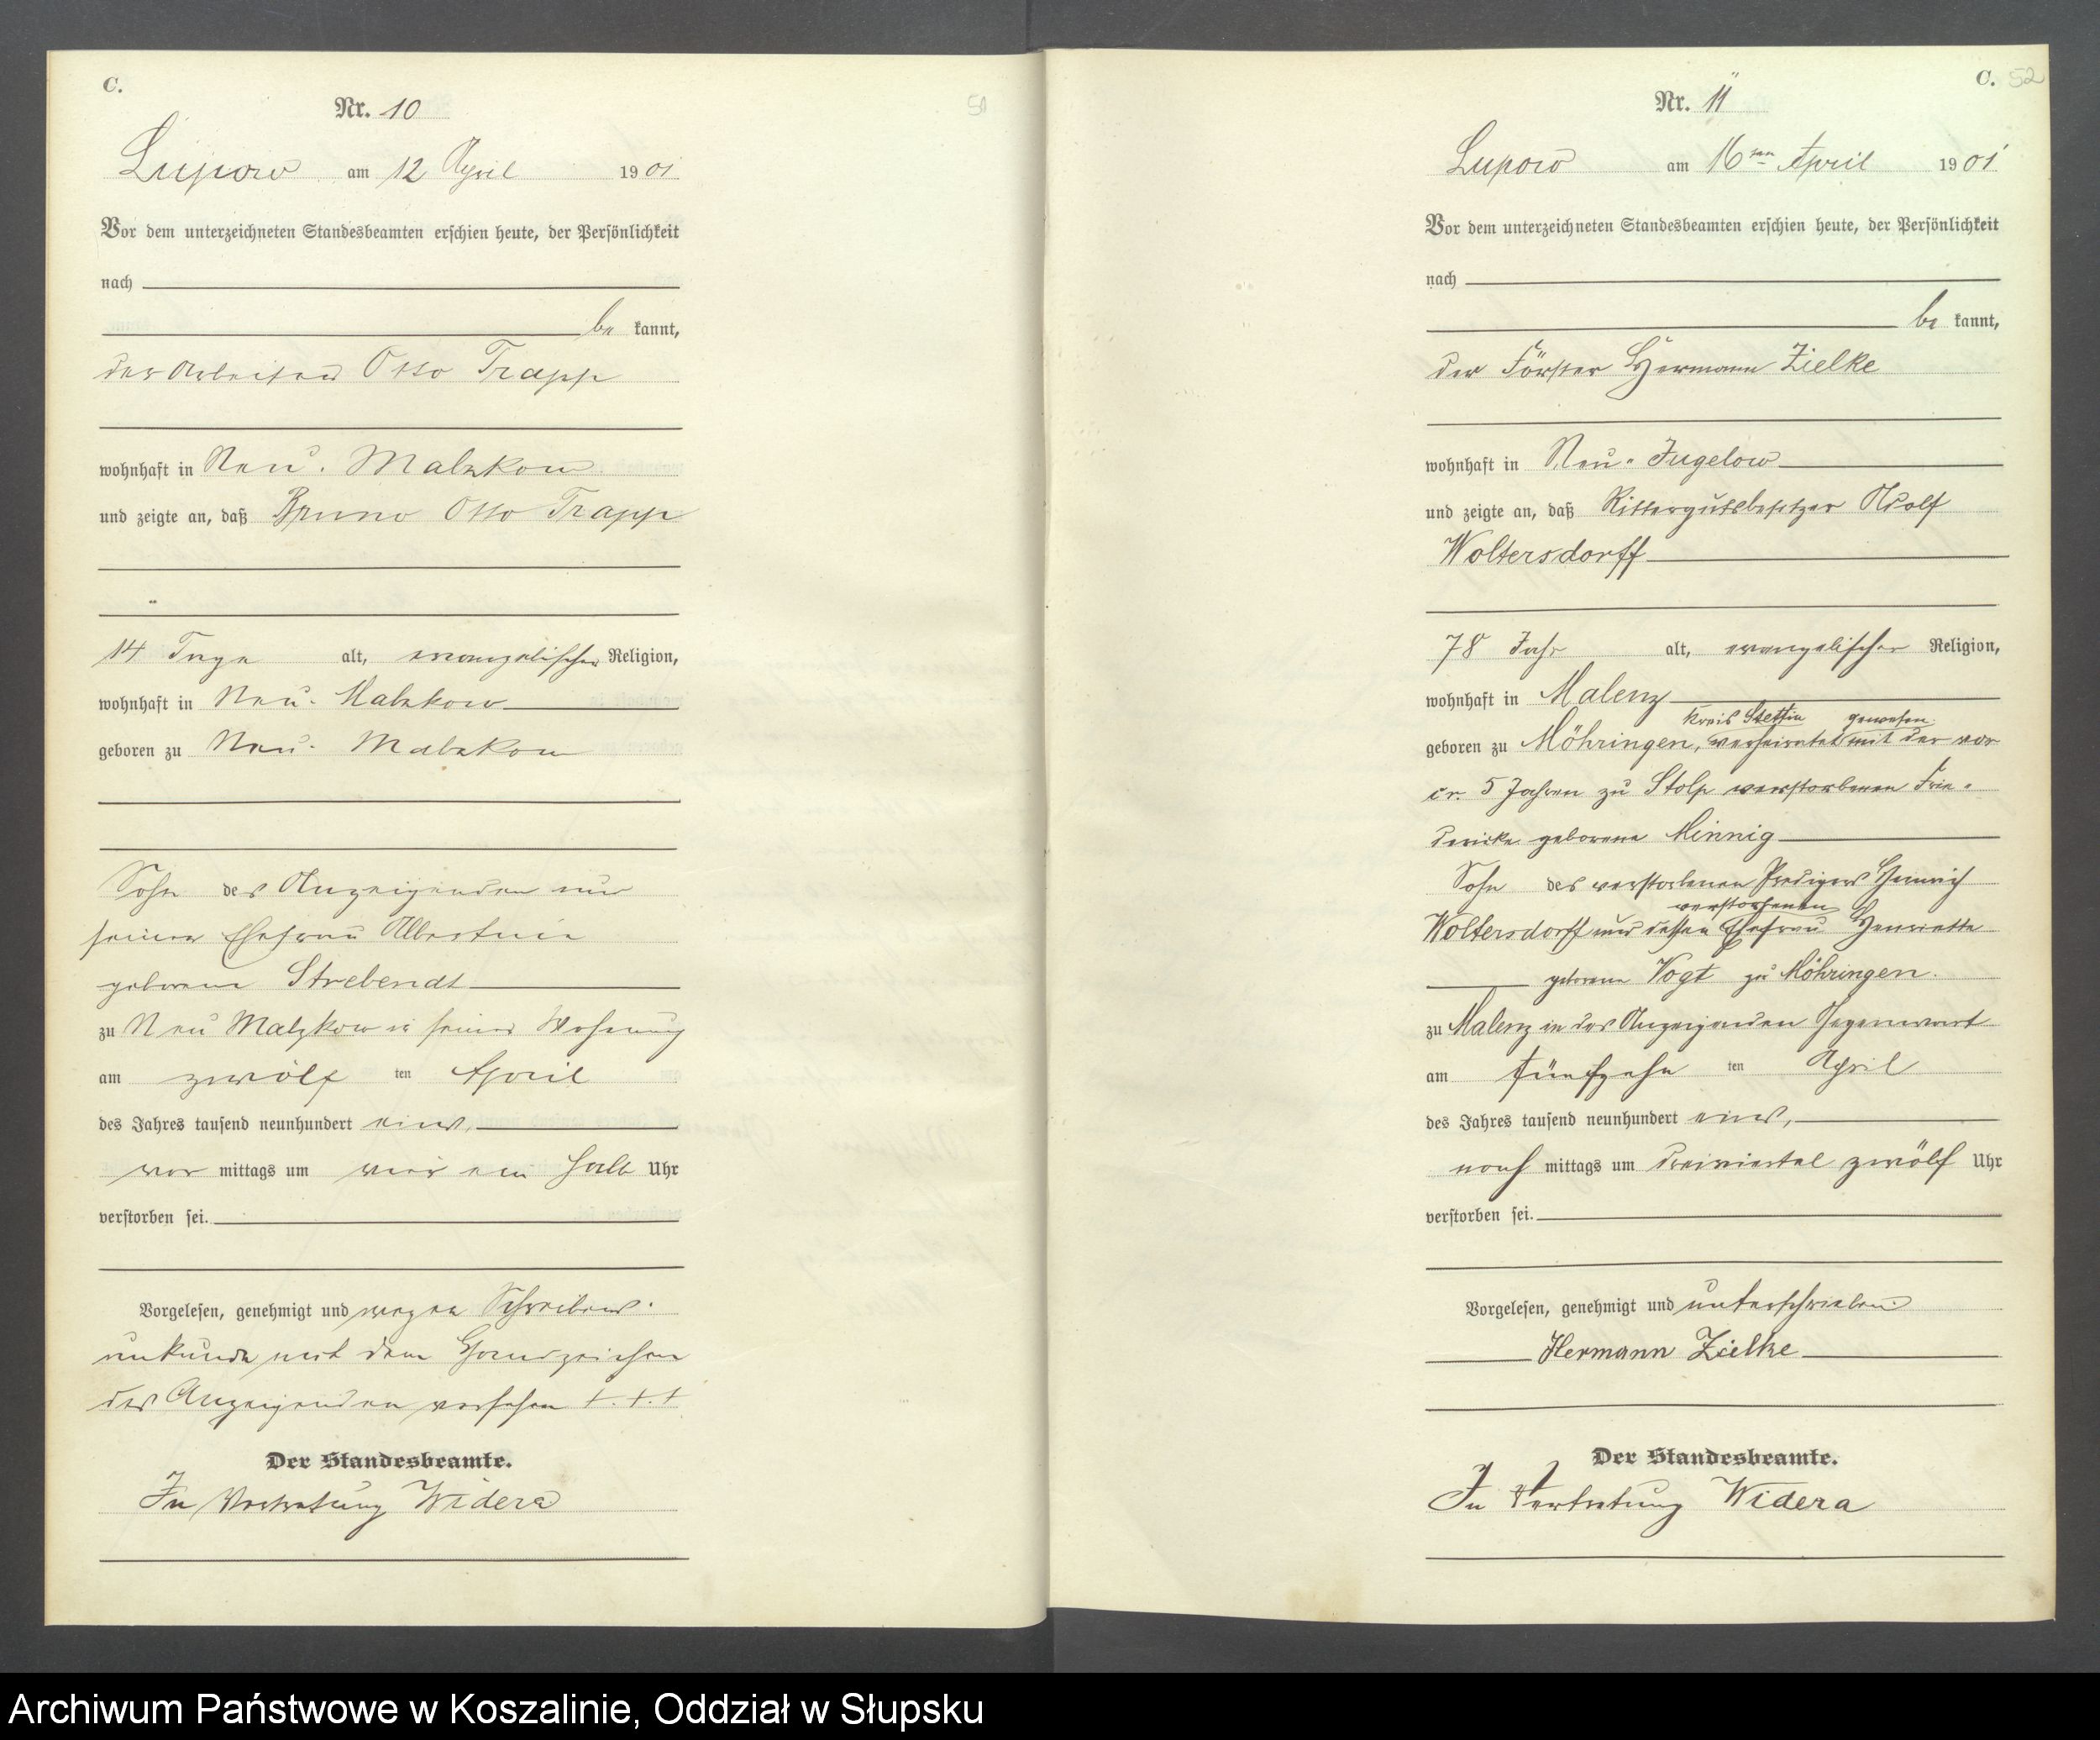 C.
Nr. 10
Lupow am 12 April 1901
Vor dem unterzeichneten Standesbeamten erschien heute, der Persönlichkeit
nach
be kannt,
der Arbeiter Otto Trapp
wohnhaft in Neu-Malzkow
und zeigte an, daß Bruno Otto Trapp
14 Tage alt, evangelischer Religion,
wohnhaft in Neu-Malzkow
geboren zu Neu-Malzkow
Sohn des Anzeigenden und
seiner Ehefrau Albertine
geborene Strebendt
zu Neu Malzkow in seiner Wohnung
am zwölf ten April
des Jahres tausend neunhundert eins,
vor mittags um vier ein halb Uhr
verstorben sei.
Vorgelesen, genehmigt und wegen Schreibens-
unkunde mit dem Handzeichen
des Anzeigenden versehen +.+.+
Der Standesbeamte.
In Vertretung Widera
C. 52
Nr. 11
Lupow am 16ten April 1901
Vor dem unterzeichneten Standesbeamten erschien heute, der Persönlichkeit
nach
be kannt,
der Förster Hermann Zielke
wohnhaft in Neu-Jugelow
und zeigte an, daß Rittergutsbesitzer Adolf
Woltersdorff
78 Jahr alt, evangelischer Religion,
wohnhaft in Malenz
Kreis Stettin gewesen
geboren zu Möhringen, verheiratet mit der vor
cr. 5 Jahren zu Stolp verstorbenen Frie-
dericke geborene Minnig
Sohn des verstorbenen Predigers Heinrich
verstorbenen
Woltersdorff und dessen Ehefrau Henriette
geborene Vogt zu Möhringen.
zu Malenz in des Anzeigenden Gegenwart
am fünfzehn ten April
des Jahres tausend neunhundert eins,
nach mittags um dreiviertel zwölf Uhr
verstorben sei.
Vorgelesen, genehmigt und unterschrieben
Hermann Zielke
Der Standesbeamte.
In Vertretung Widera
Archiwum Państwowe w Koszalinie, Oddział w Słupsku